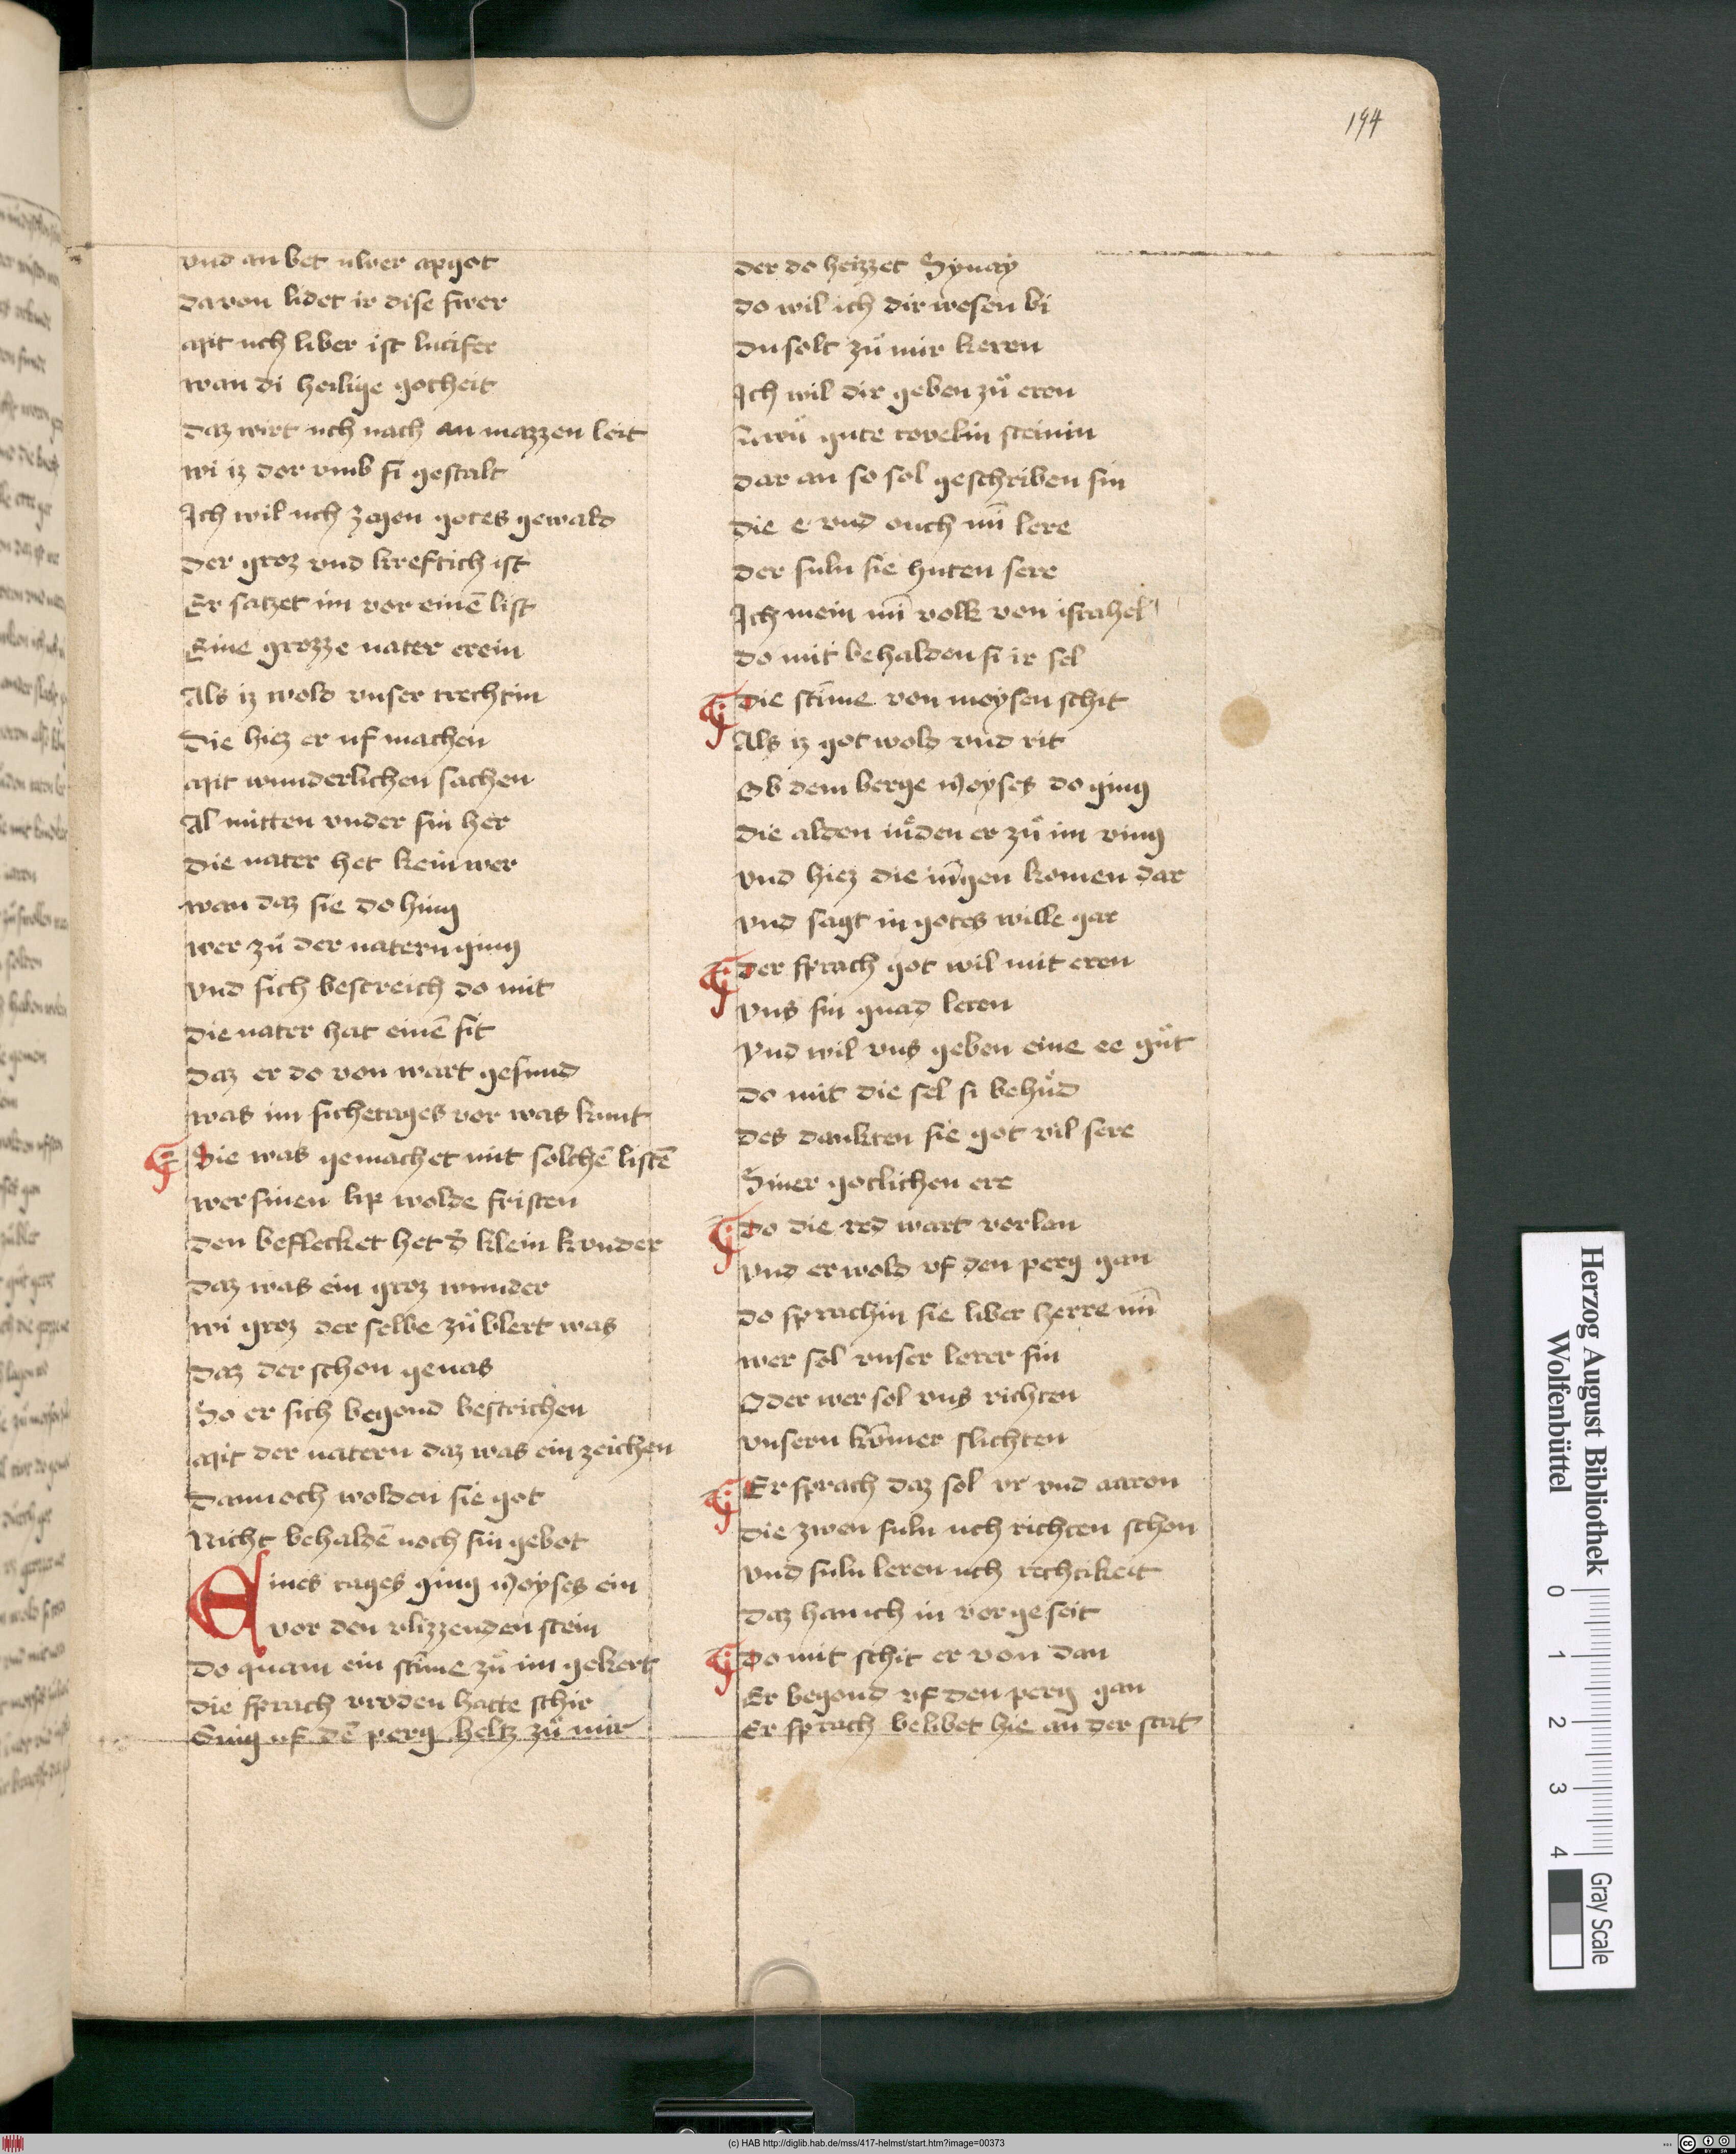 194
vnd an bet ulver apgot
Da von lidet ir dise swer
Mit uch liber ist lucifer
wan di heilige gotheit
Daz wirt uch nach an mazzen leit
wi iz dor vmb si gestalt
Ich wil uch zegen gotes gewald
Der groz vnd kreftich ist
Er satzet im vor einē list
Eine grozze nater erein
Als iz wold vnser trechtin
Die hiez er uf machen
Mit wunderlichen sachen
Al mitten vnder sin her
Die nater het kein wer
wan daz sie do hing
wer zů der natern ging
vnd sich bestreich do mit
Die nater hat einē sit
Daz er do von wart gesund
was im sichetages vor was kunt
Die was gemachet mit solchē listē
wer sinen lip wolde fristen
Den beflecket het d̄ klein kunder
Daz was ein groz wunder
wi groz der selbe zůblert was
Daz der schon genas
So er sich begond bestrichen
Mit der natern daz was ein zeichen
Dannoch wolden sie got
Nicht behaldē noch sin gebot
Eines tages ging Moyses ein
vor den vlizzenden stein
Do quam ein stīme zů im gekert
Die sprach vroden hatte schir
Ging uf dē perg heltz zů mir
der do heizzet Synay
do wil ich dir wesen bi
Du solt zů mir keren
Ich wil dir geben zů eren
gute tovelin steinin
Dar an so sol geschriben sin
die e vnd ouch mī lere
der suln sie huten sere
Ich mein mī volk von israhel
Do mit behalden si ir sel
Die stīme von moysen schit
Als iz got wold vnd rit
Ob dem berge Moyses do ging
die alden iůden er zů im ving
vnd hiez die iūgen komen dar
vnd sagt in gotes wille gar
Der sprach got wil mit eren
vns sin gnad leren
Vnd wil vns geben eine ee gůt
do mit die sel si behůd
des dankten sie got vil sere
Siner gotlichen ere
Do die red wart vorlan
Vnd er wold vf den perg gan
do sprachin sie liber herre mī
wer sol vnser lerer sin
Oder wer sol vns richten
vnsern kōmer slichten
Er sprach daz sol vr vnd aaron
die zwen suln uch richten schon
vnd suln leren uch rechtikeit
Daz han ich in vorgeseit
Do mit schit er von dan
Er begond vf den perg gan
Er sprach belibet hie an der stat
Herzog August Bibliothek
Wolfenbüttel
0 1 2 3 4
Gray Scale
(c) HAB http://diglib.hab.de/mss/417-helmst/start.htm?image=00373